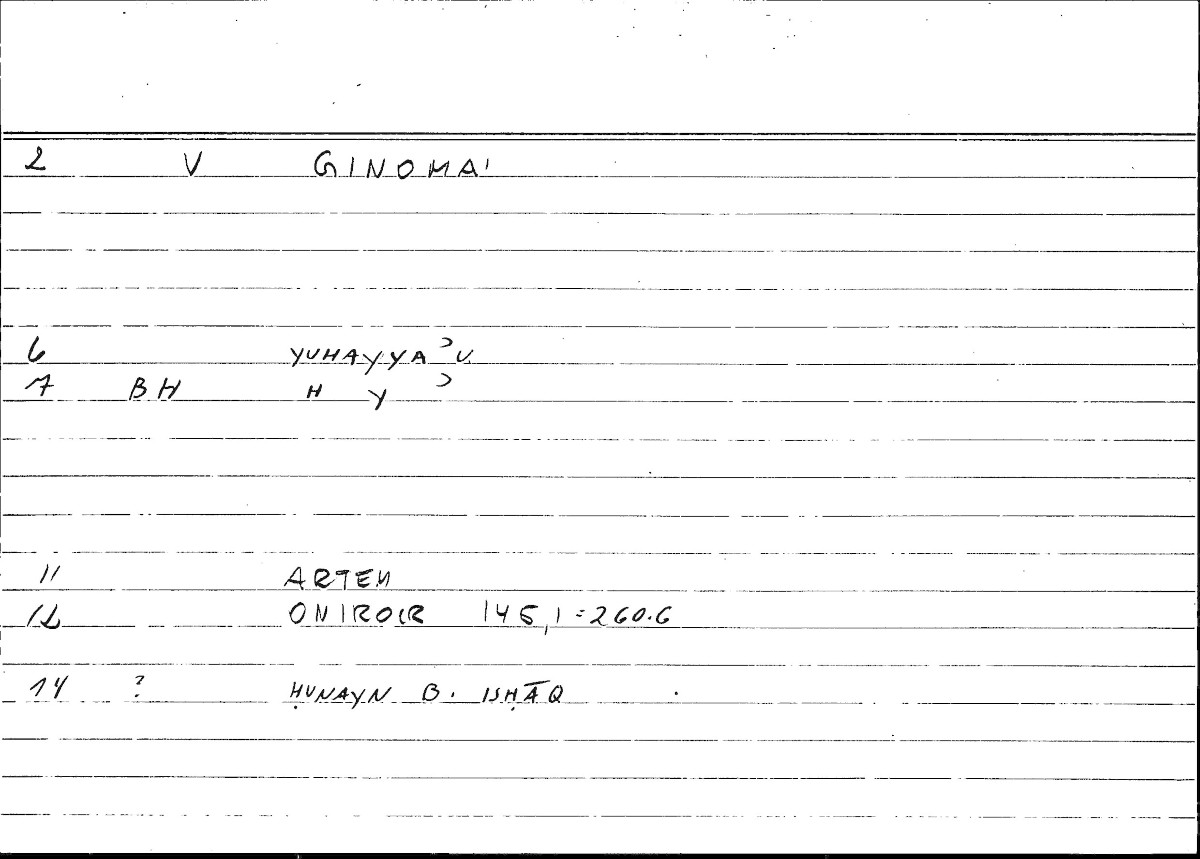 2 V GINOMAI
6 YUHAYYAʾU
7 BH H Y ʾ
11 ARTEM
12 ONIROCR 145,1=260.6
14 ? ḤUNAYN B. ISḤĀQ